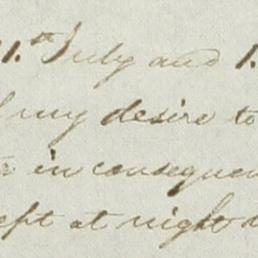 1.th July and 1.
my desire to
in consequen
ept at night